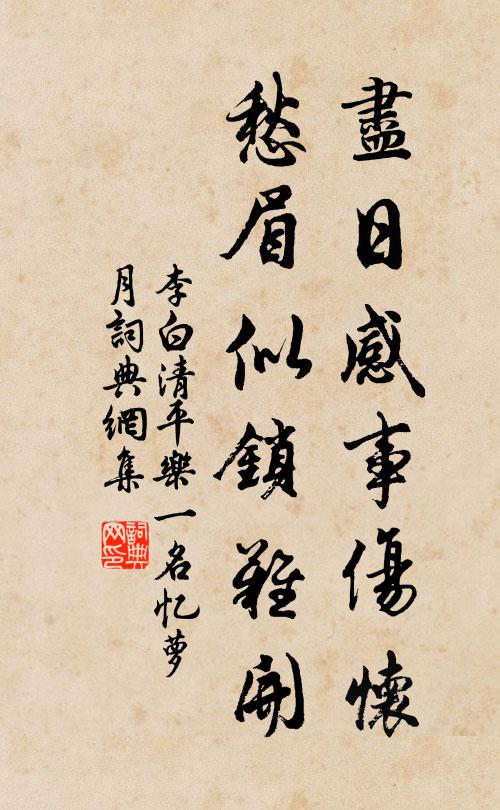 盡日感事傷懷
愁眉似鎖難開
李白清平樂一名忆萝
月詞典網集
詞典
网印